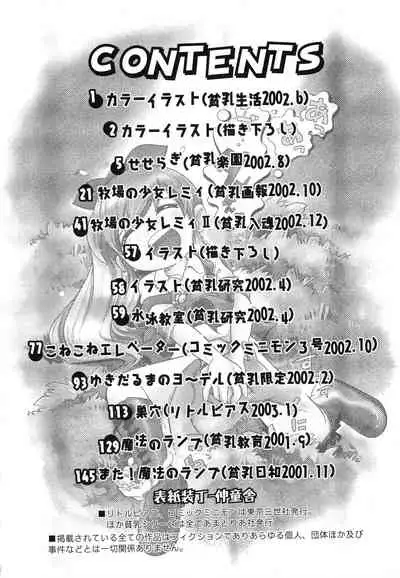 CONTENTS
1 カラーイラスト(貧乳生活2002.6)
2 カラーイラスト(描き下ろし)
5 せせらぎ(貧乳楽園2002.8)
21 牧場の少女レミィ(貧乳画報2002.10)
41 牧場の少女レミィⅡ(貧乳入魂2002.12)
57 イラスト(描き下ろし)
58 イラスト(貧乳研究2002.4)
59 水泳教室(貧乳研究2002.4)
77 こねこねエレベーター(コミックミニモン3号2002.10)
93 ゆきだるまのヨ〜デル(貧乳限定2002.2)
113 巣穴(リトルピアス2003.1)
129 魔法のランプ(貧乳教育2001.9)
145 また!魔法のランプ(貧乳日和2001.11)
表紙装丁-伸童舎
■リトルピアス、コミックミニモンは東京三世社発行。
ほか貧乳シリーズは全てあまとりあ社発行
■掲載されている全ての作品はフィクションでありあらゆる個人、団体ほか及び
事件などとは一切関係ありません。